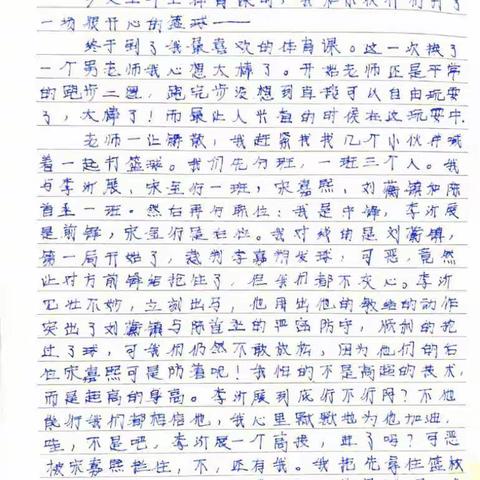 一场很开心的篮球——
终于到了我最喜欢的体育课。这一次换了
一个男老师我心想太棒了。开始老师还是平常
的跑步二圈，跑完步没想到直接可以自由玩耍
了，太棒了！而最让人兴奋的时候在这玩耍中.
老师一让解散，我赶紧找我几个小伙伴喊
着一起打篮球。我们先分班，一班三个人。我
与李沂展、宋
一班，宋嘉熙、刘
镇加陈
首
一班。然后再分职位：我是中锋，李沂展
是前锋，宋
是后卫。我对线的是刘
镇，
第一局开始了，裁判李嘉
发球，可恶，竟然
让对方前锋给抢住了，但我们都不灰心。李沂
见壮不妙，立刻出马，他用出他的敏捷的动作
突出了刘
镇与陈首
的严密防守，顺利的抢
过了球，可我们仍然不敢放松，因为他们的后
卫宋嘉熙可是防着呢！我怕的不是高超的技术，
而是超高的身高。李沂展到底行不行啊？不他
能行我们都相信他，我心里默默地为他加油，
哇，不是吧，李沂展一个高投，进了吗？可恶
被宋嘉熙拦住，不，还有我。我把先辱住篮板